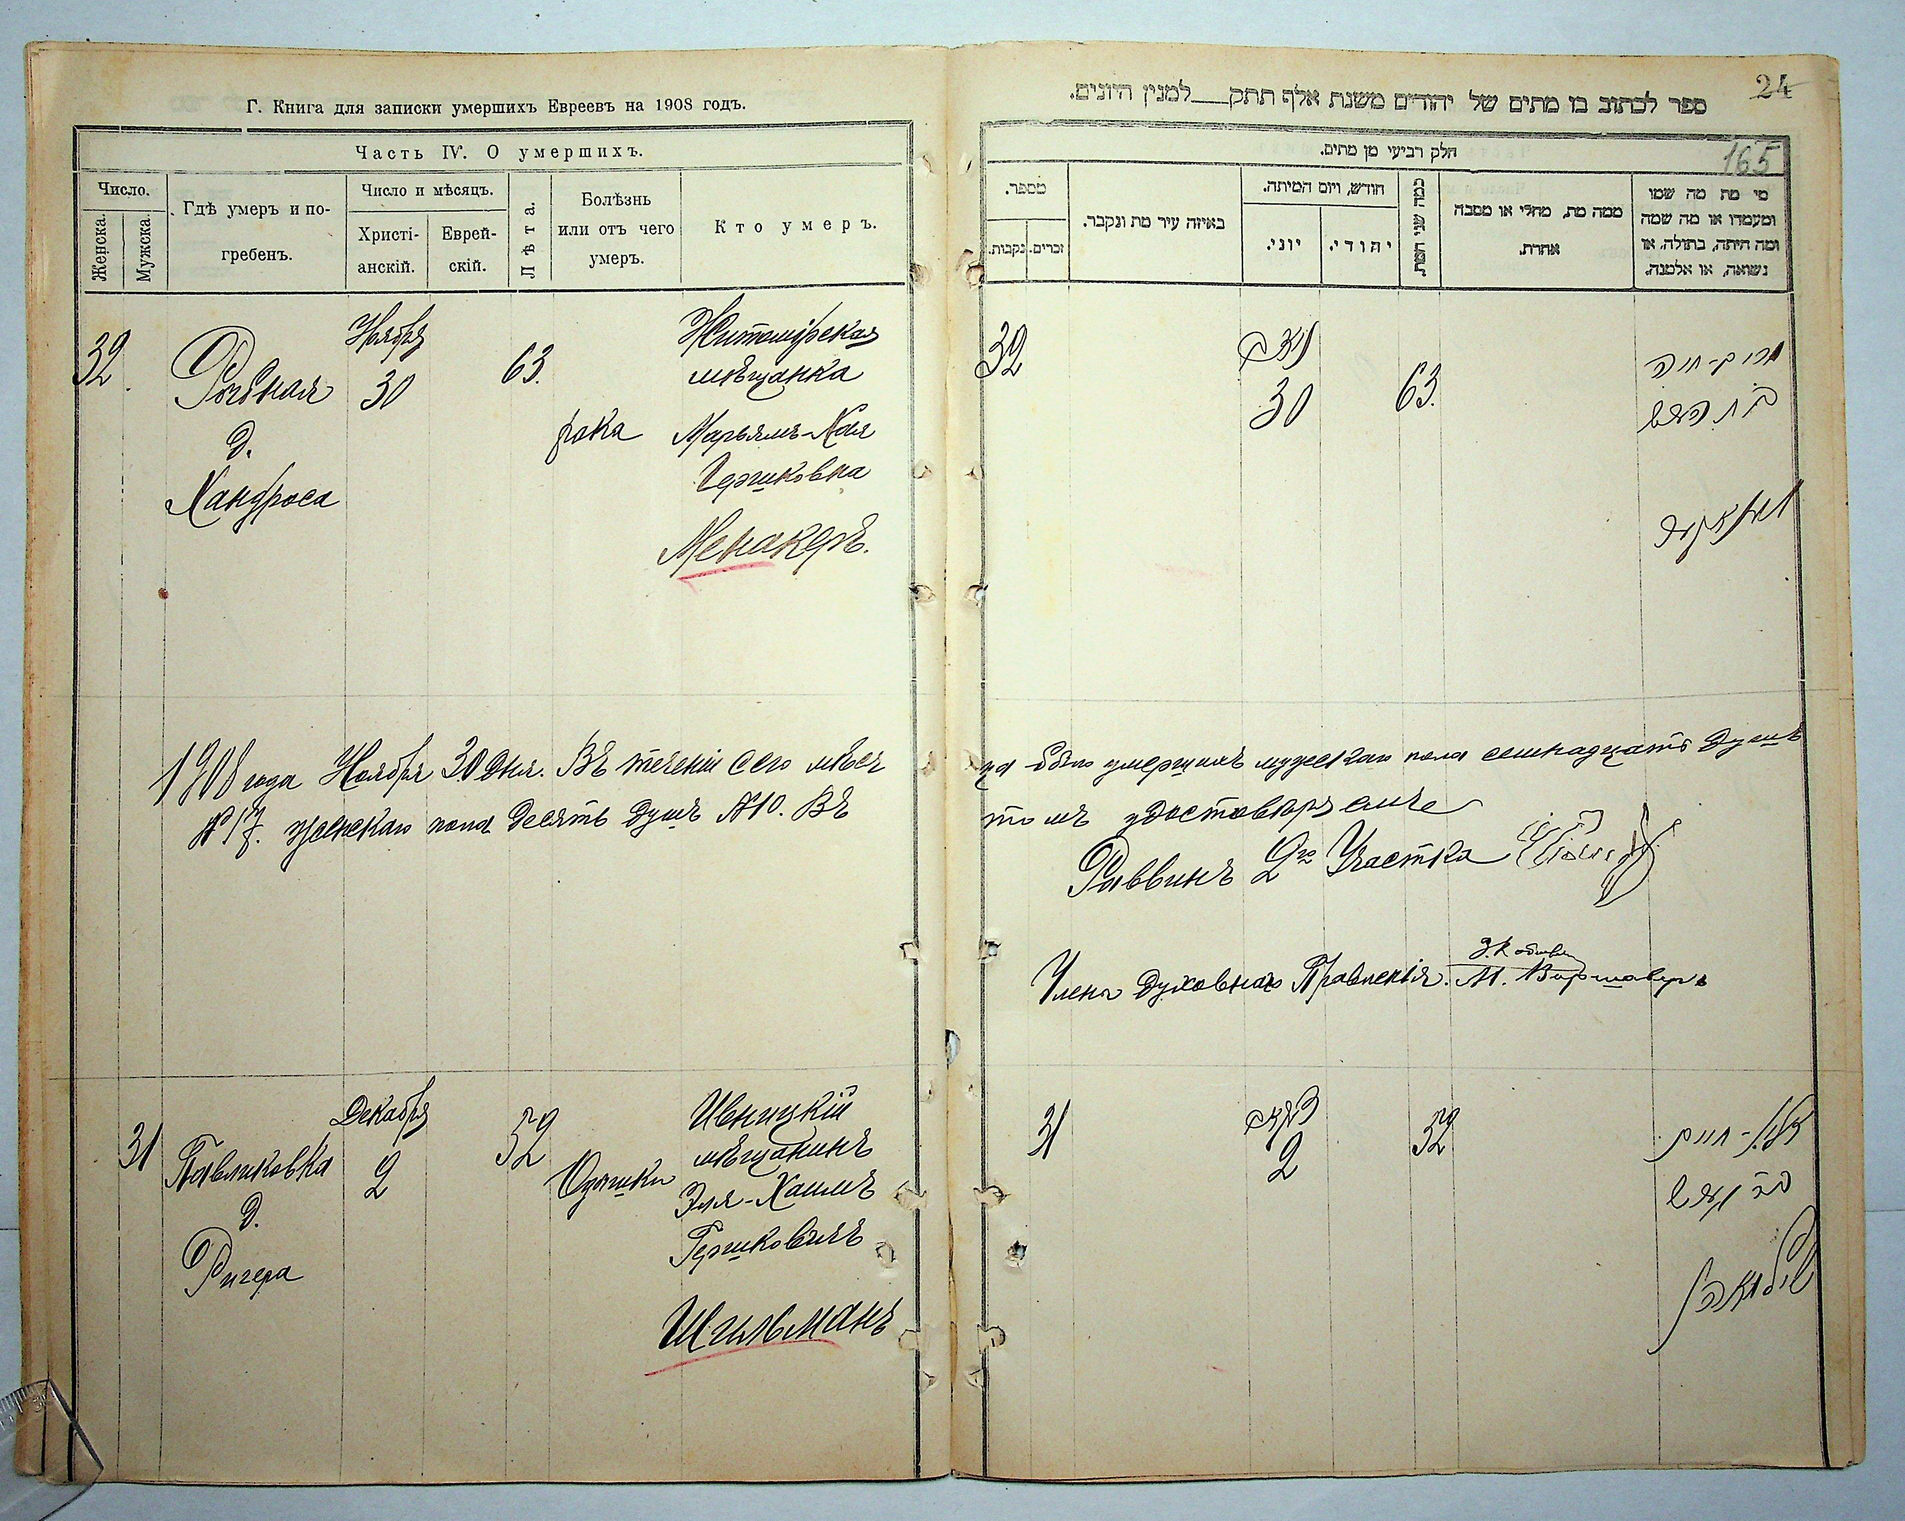 Г. Книга для записки умершихъ Евреевъ на 1908 годъ.
Часть IV. О умершихъ.
Число.
Женска.
Мужска.
Гдѣ умеръ и по-
гребенъ.
Число и мѣсяцъ.
Христі-
анскій.
Еврей-
скій.
Лѣта.
Болѣзнь
или отъ чего
умеръ.
Кто умеръ.
32.
Рогвная
д.
Хандроса
Ноября
30
63.
рака
Житомірская
мѣщанка
Марьямъ-Хая
Гершковна
Менакеръ.
1908 года Ноября 30 дня. Въ теченіи сего мѣся
№17. женскаго пола десять душъ №10. Въ
31
Павликовка
д.
Ригера
Декабря
2
52
Одышки
Ивницкій
мѣщанинъ
Эля-Хаимъ
Гершковичъ
Шильманъ
24
ספר לכתוב בו מתים של יהודים משנת אלף תתק__למנין היונים.
165
חלק רביעי מן מתים.
מספר.
נקבות.
זכרים.
באיזה עיר מת ונקבר.
חודש, ויום המיתה.
יוני.
יהודי.
כמה שני המת.
ממה מת, מחלי או מסבה
אחרת.
מי מת מה שמו
ומעמדו או מה שמה
ומה היתה, בתולה, או
נשואה, או אלמנה.
32
30
63.
מרים-חיה
בת הערש
מענאקער
ца было умершихъ мужскаго пола семнадцать душъ
томъ удостовѣряемъ
Раввинъ 2го Участка
Члены Духовнаго Правленія. М. Варшаверъ
31
דעקאב
2
52
עלי-חיים
שילמאן